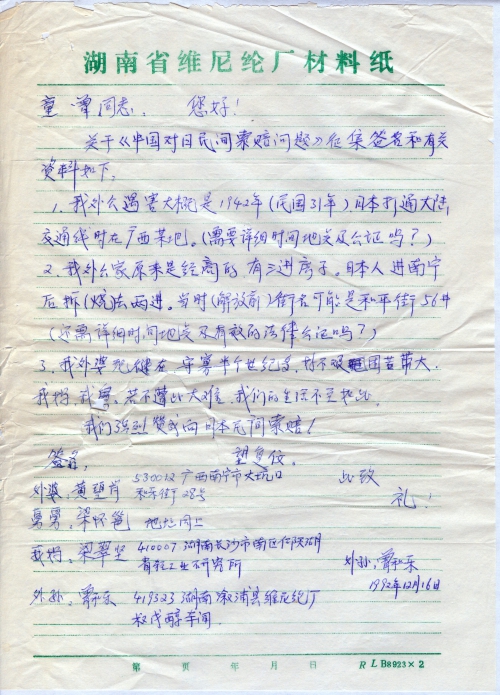 湖南省维尼纶厂材料纸
童曾同志, 您好!
关于《中国对日民间索赔问题》征集签名和有关
资料如下:
1. 我外公遇害大概是1942年(民国31年)日本打通大陆
交通线时在广西某地。(需要详细时间地点及公证吗?)
2. 我外公家原来是经商的, 有三进房子。日本人进南宁
后拆(烧)去两进。当时(解放前)街名可能是和平街56#
(还需详细时间地点及有效的法律公证吗?)
3. 我外婆现健在, 守寡半个世纪多,
我妈、我舅。若不遭此大难, 我们的生活不至如此。
我们强烈赞成向日本民间索赔!
签名: 望复信。
外婆: 黄 530012 广西南宁市大坑口
和平街28号
此致
礼!
舅舅: 梁 地址同上
我妈: 梁翠 410007 湖南长沙市南区
青 工业研究所
外孙:
1992年12月16日
外孙: 419323 湖南溆浦县维尼纶厂
醇车间
第 页 年 月 日 RLB8923×2